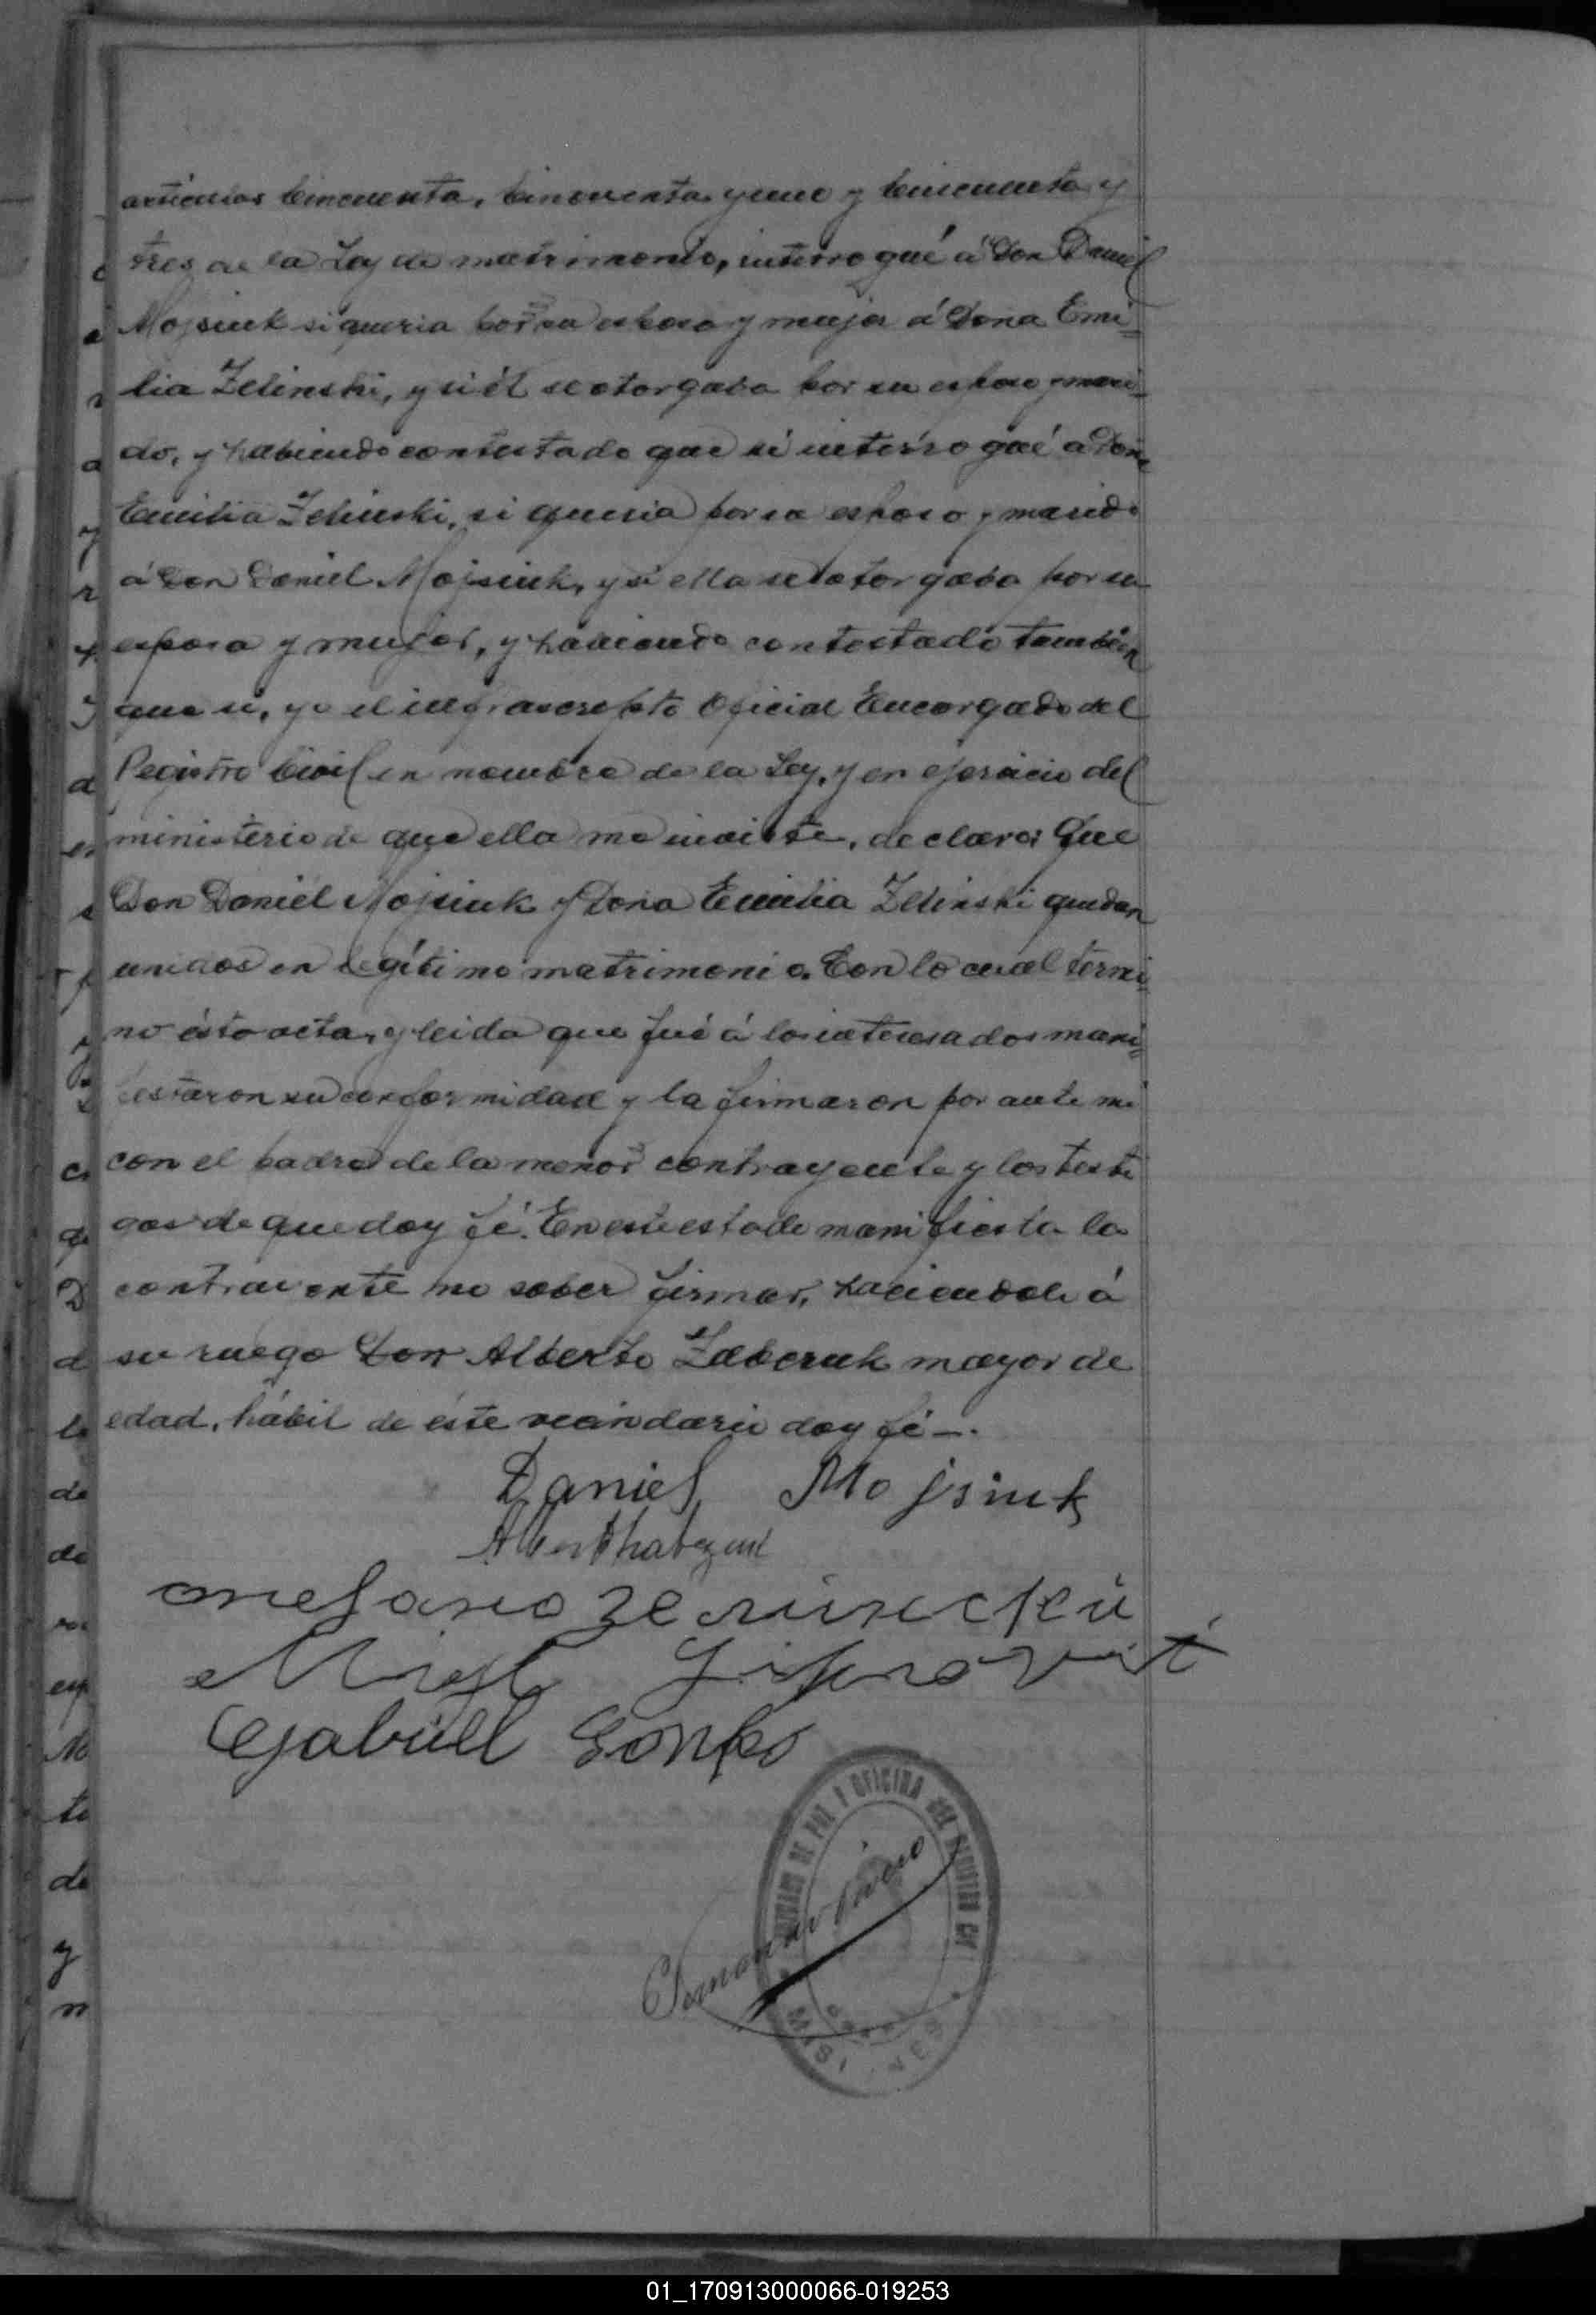 articulos Cincuenta, Cincuenta y uno y Cincuenta y
tres de la Ley de matrimonio, interrogué á Don Daniel
Mojsiuk si queria por su esposa y mujer á Dona Emi=
lia Zelinski, y si él se otorgaba por su esposo y mari=
do, y habiendo contestado que si interrogué a Dona
Emilia Zelinski, si queria por su esposo y marido
á Don Daniel Mojsiuk, y si ella se otorgaba por su
esposa y mujer, y habiendo contestado tambien
que si, yo el infrascripto Oficial Encargado del
Registro Civil en nombre de la Ley, y en ejercicio del
ministerio de que ella me inviste, declaro: Que
Don Daniel Mojsiuk y Dona Emilia Zelinski quedan
unidos en legítimo matrimonio. Con lo cual termi=
no ésta acta, y leida que fué á los interesados mani=
festaron su conformidad y la firmaron por ante mi
con el padre de la menor contrayente y los testi
gos de que doy fé. En este estado manifiesta la
contrayente no saber firmar, haciendole á
su ruego Don Alberto Zabczuk mayor de
edad, hábil de éste vecindario doy fé —.
Daniel Mojsiuk
зелински
Gabriell
DE PAZ Y OFICINA DEL REGISTRO CIVIL
MISIONES
01_170913000066-019253